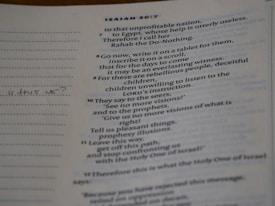 ISAIAH 30:7
to that unprofitable nation,
7 to Egypt, whose help is utterly useless.
Therefore I call her
Rahab the Do-Nothing.
8 Go now, write it on a tablet for them,
inscribe it on a scroll,
that for the days to come
it may be an everlasting witness.
9 For these are rebellious people, deceitful
children,
children unwilling to listen to the
LORD's instruction.
10 They say to the seers,
"See no more visions!"
and to the prophets,
"Give us no more visions of what is
right!
Tell us pleasant things,
prophesy illusions.
11 Leave this way,
get off this path,
and stop confronting us
with the Holy One of Israel!"
12 Therefore this is what the Holy One of Israel
says:
"Because you have rejected this message,
relied on oppression